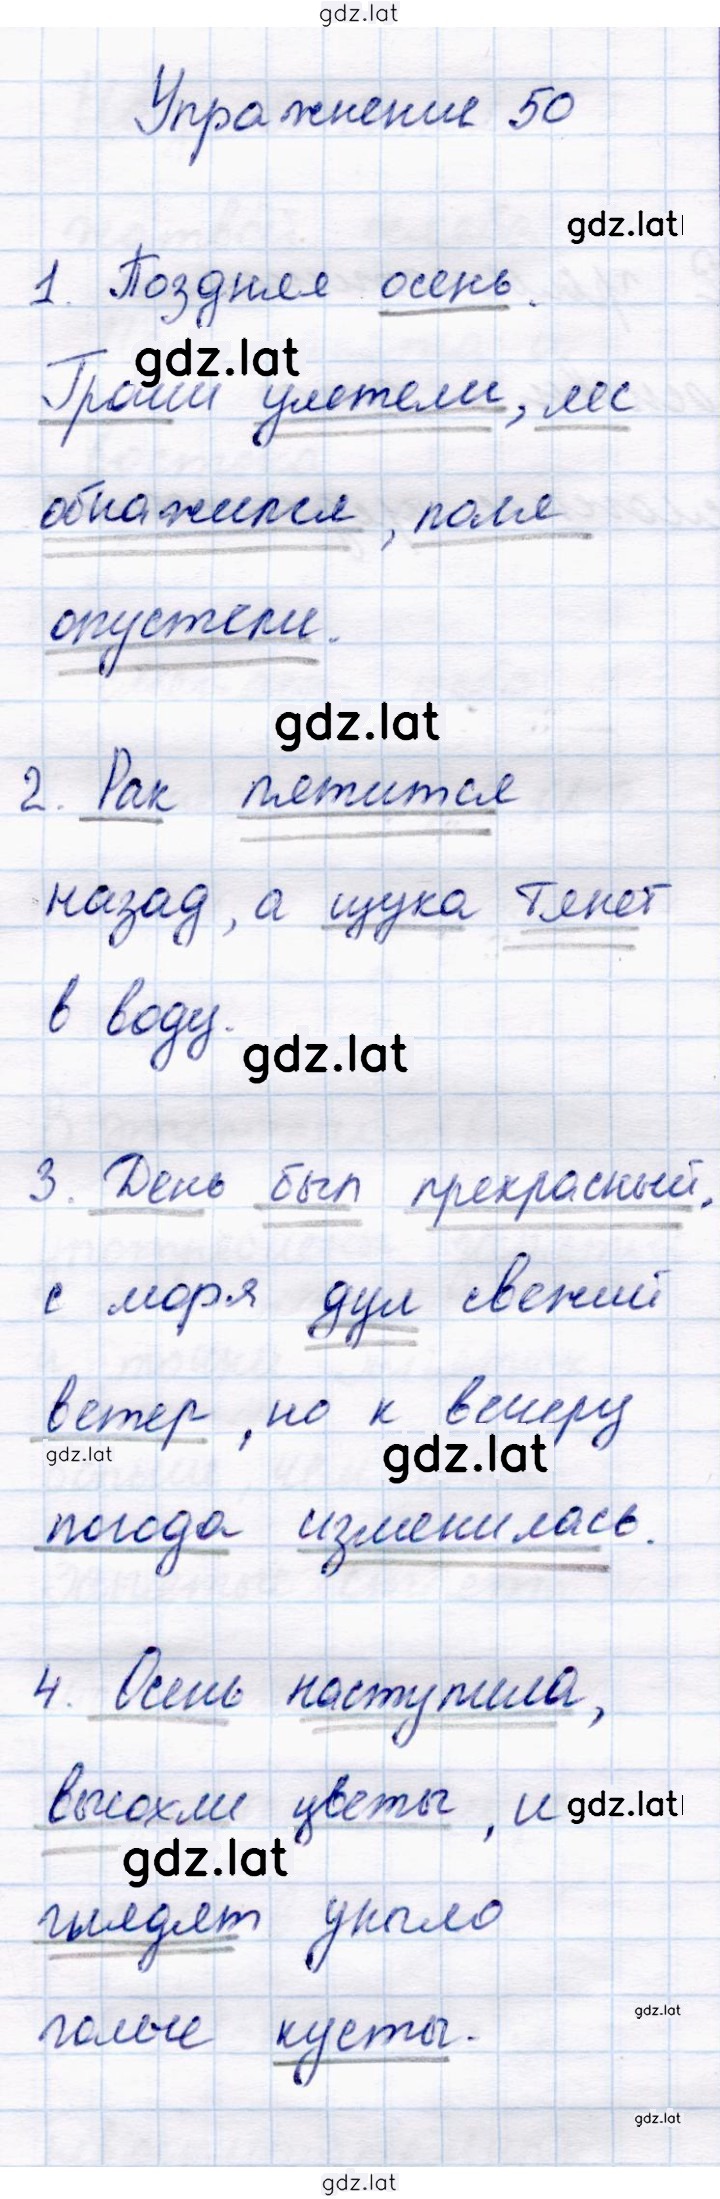 gdz.lat
Упражнение 50
gdz.lat
1. Поздняя осень.
gdz.lat
Грачи улетели, лес
обнажился, поля
опустели.
gdz.lat
2. Рак пятится
назад, а щука тянет
в воду.
gdz.lat
3. День был прекрасный,
с моря дул свежий
ветер, но к вечеру
gdz.lat
gdz.lat
погода изменилась.
4. Осень наступила,
высохли цветы, и
gdz.lat
gdz.lat
глядят уныло
голые кусты.
gdz.lat
gdz.lat
gdz.lat